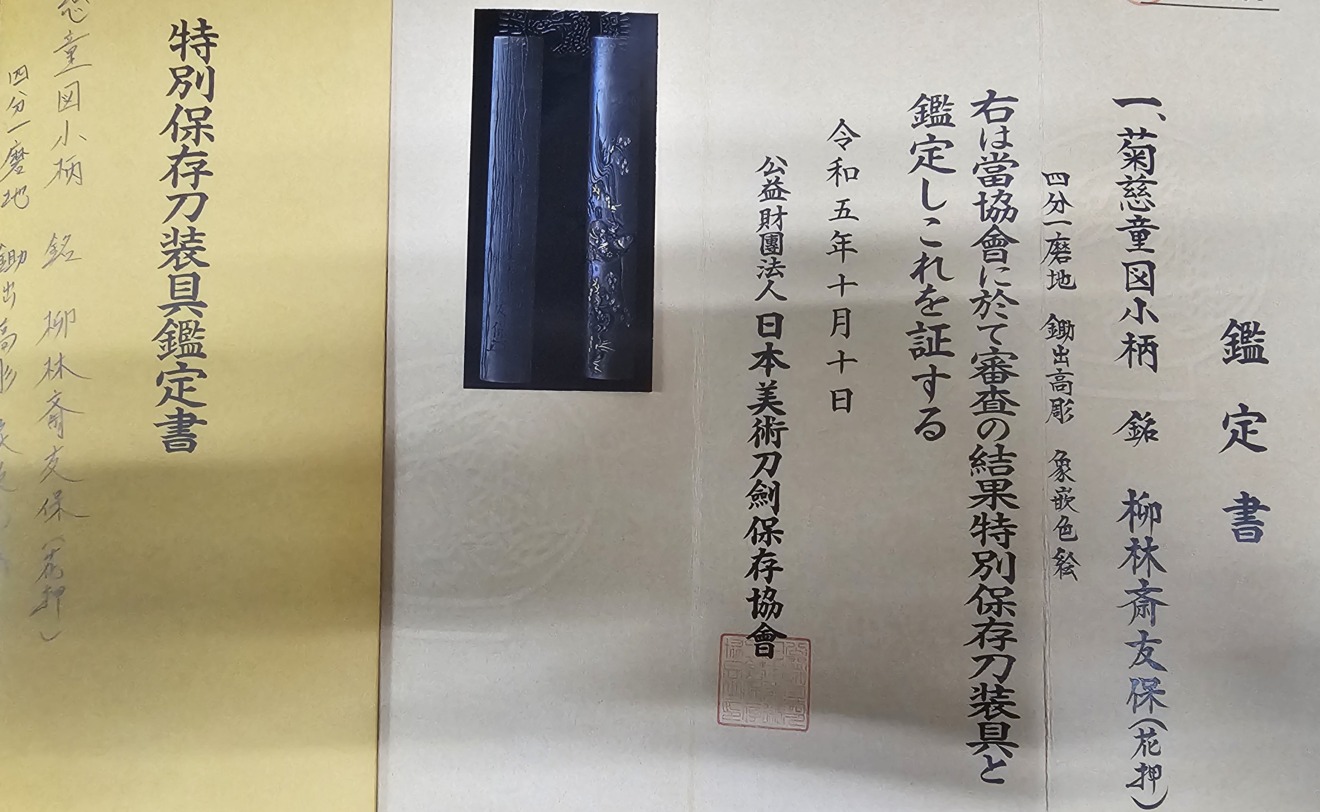 鑑定書
一、菊慈童図小柄 銘 柳林斎友保(花押)
四分一磨地 鋤出高彫 象嵌色絵
右は當協會に於て審査の結果特別保存刀装具と
鑑定しこれを証する
令和五年十月十日
公益財團法人 日本美術刀劍保存協會
特別保存刀装具鑑定書
慈童図小柄 銘 柳林斎友保(花押)
四分一磨地 鋤出高彫